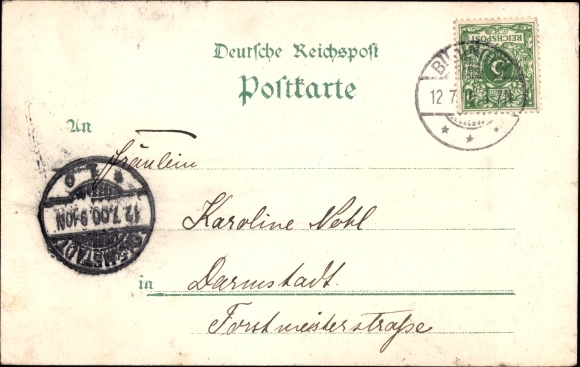 Deutsche Reichspost
Postkarte
An
Fräulein
Karoline Nohl
in Darmstadt.
Forstmeisterstraße
REICHSPOST
5
12.7.
12.7.00.9-10N
DARMSTADT